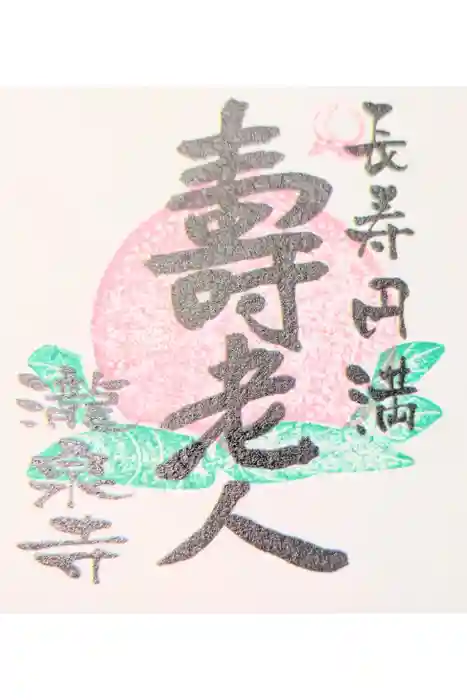 長寿円満
壽老人
瀧泉寺